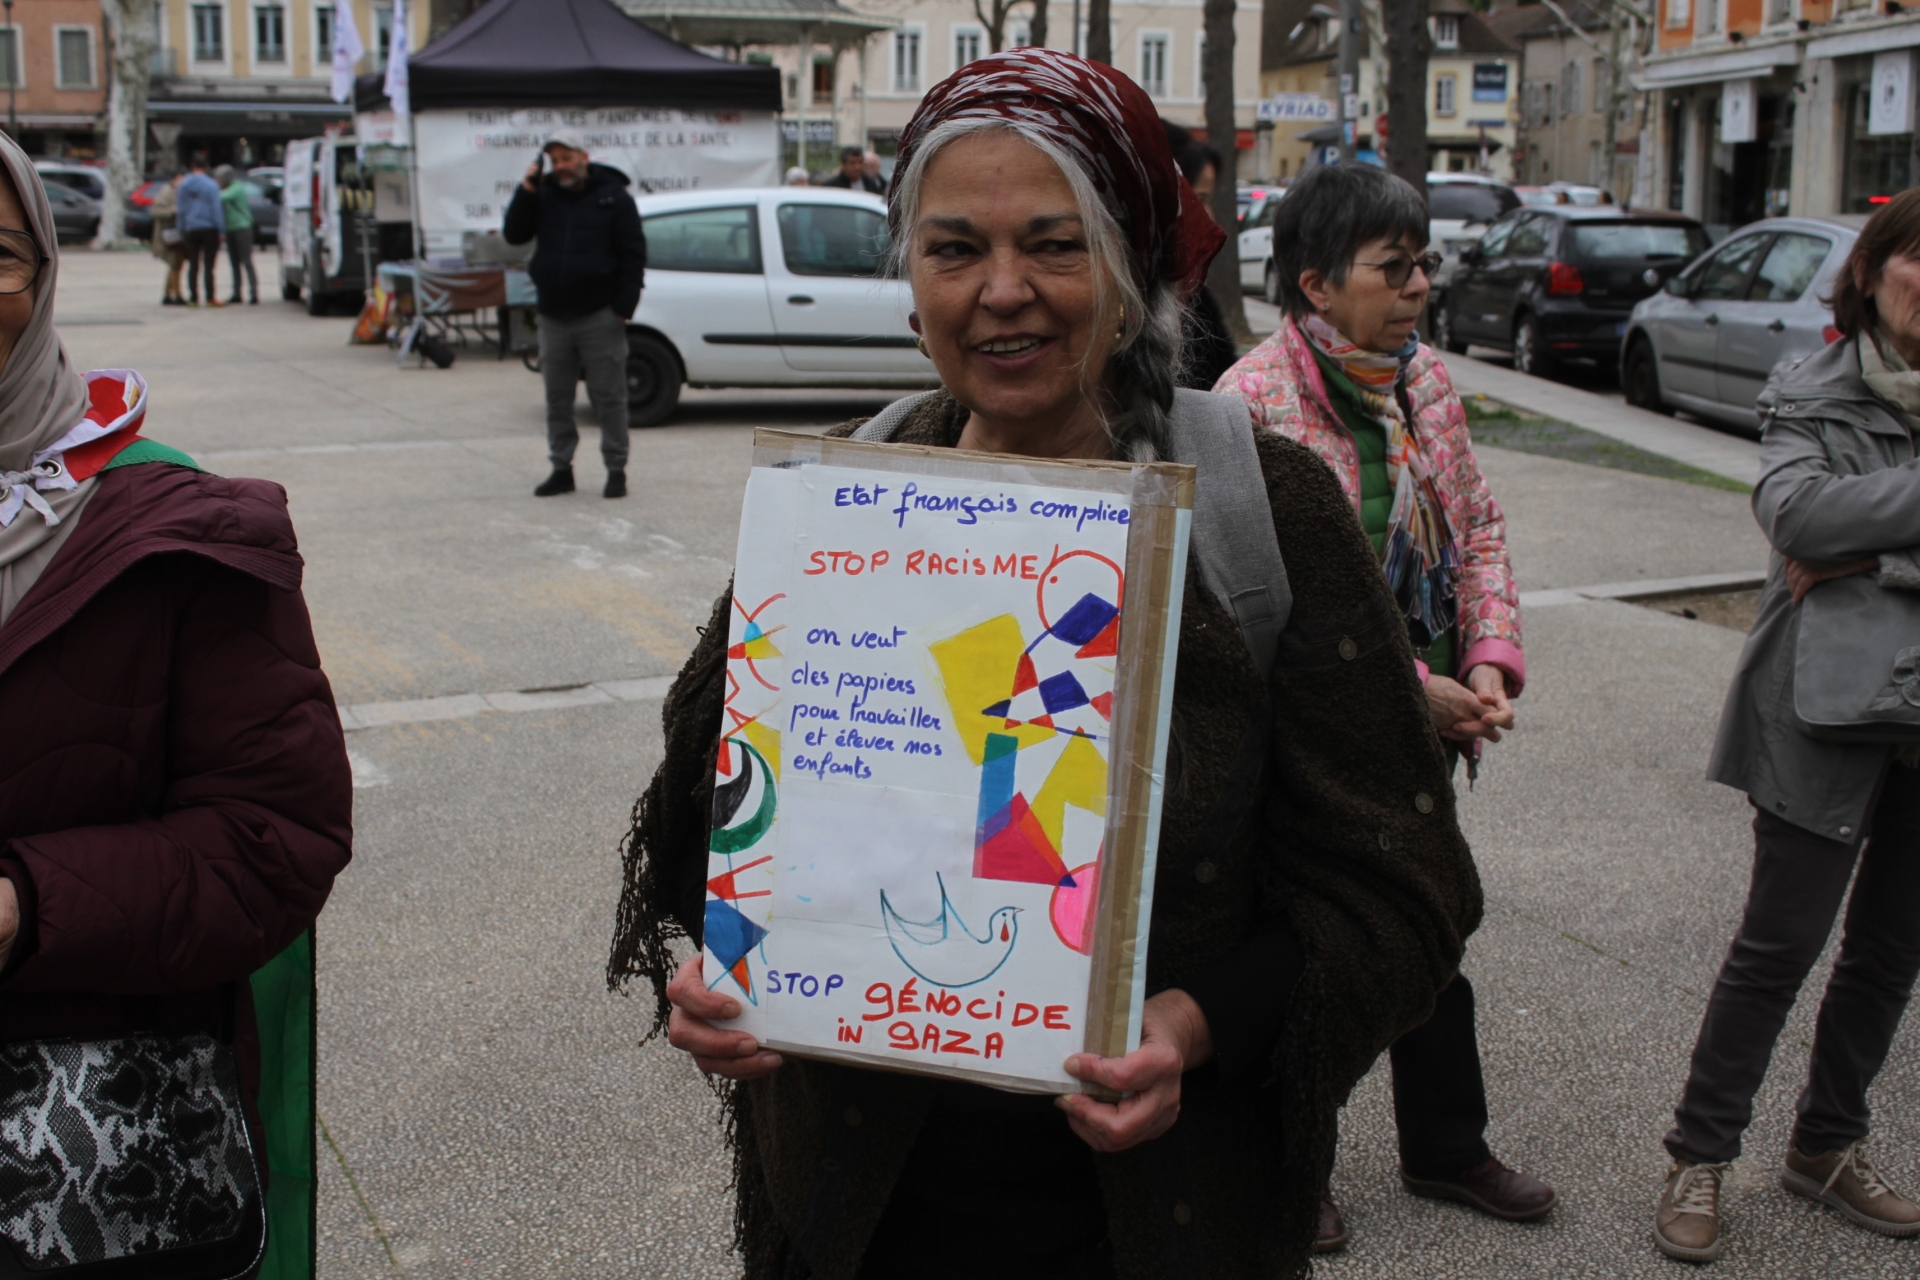 TRAITÉ SUR LES PANDÉMIES DE L'OMS
ORGANISA MONDIALE DE LA SANTÉ
MONDIALE
SUR
KYRIAD
Etat français complice
STOP RACISME
on veut
des papiers
pour travailler
et élever nos
enfants
STOP GÉNOCIDE
in GAZA